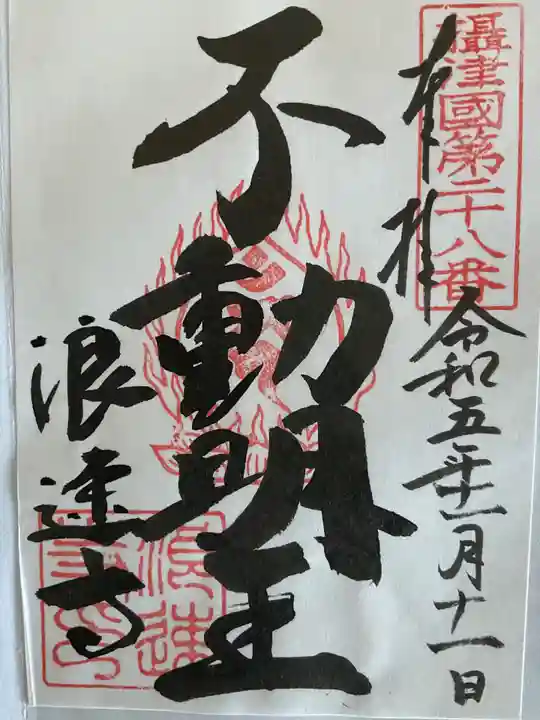 攝津國第二十八番
奉拝
令和五年十一月十一日
不動明王
浪速寺